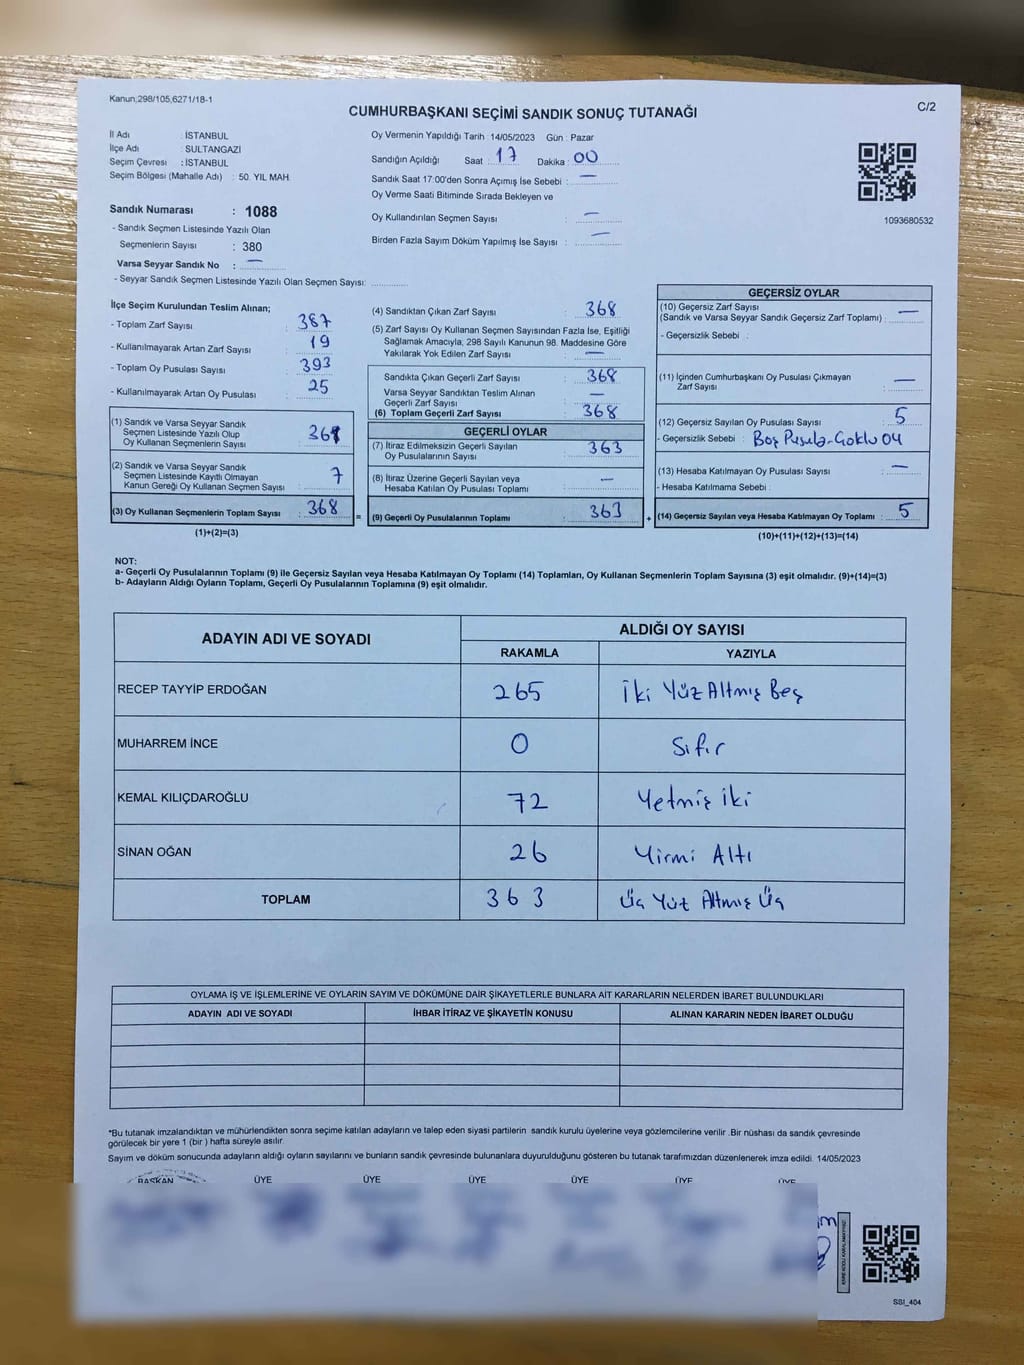 Kanun;298/105,6271/18-1
CUMHURBAŞKANI SEÇİMİ SANDIK SONUÇ TUTANAĞI
C/2
İl Adı : İSTANBUL
İlçe Adı SULTANGAZİ
Seçim Çevresi : İSTANBUL
Seçim Bölgesi (Mahalle Adı) : 50. YIL MAH.
Oy Vermenin Yapıldığı Tarih : 14/05/2023 Gün : Pazar
Sandığın Açıldığı Saat : 17 Dakika : 00
Sandık Saat 17:00'den Sonra Açımış İse Sebebi : —
Oy Verme Saati Bitiminde Sırada Bekleyen ve
Oy Kullandırılan Seçmen Sayısı : —
Birden Fazla Sayım Döküm Yapılmış İse Sayısı : —
1093680532
Sandık Numarası : 1088
- Sandık Seçmen Listesinde Yazılı Olan
Seçmenlerin Sayısı : 380
Varsa Seyyar Sandık No : —
- Seyyar Sandık Seçmen Listesinde Yazılı Olan Seçmen Sayısı:
İlçe Seçim Kurulundan Teslim Alınan;
- Toplam Zarf Sayısı : 387
- Kullanılmayarak Artan Zarf Sayısı : 19
- Toplam Oy Pusulası Sayısı : 393
- Kullanılmayarak Artan Oy Pusulası : 25
(1) Sandık ve Varsa Seyyar Sandık
Seçmen Listesinde Yazılı Olup
Oy Kullanan Seçmenlerin Sayısı :
(2) Sandık ve Varsa Seyyar Sandık
Seçmen Listesinde Kayıtlı Olmayan
Kanun Gereği Oy Kullanan Seçmen Sayısı : 7
(3) Oy Kullanan Seçmenlerin Toplam Sayısı : 368
(1)+(2)=(3)
(4) Sandıktan Çıkan Zarf Sayısı : 368
(5) Zarf Sayısı Oy Kullanan Seçmen Sayısından Fazla İse, Eşitliği
Sağlamak Amacıyla, 298 Sayılı Kanunun 98. Maddesine Göre
Yakılarak Yok Edilen Zarf Sayısı : —
Sandıkta Çıkan Geçerli Zarf Sayısı : 368
Varsa Seyyar Sandıktan Teslim Alınan
Geçerli Zarf Sayısı : —
(6) Toplam Geçerli Zarf Sayısı : 368
GEÇERLİ OYLAR
(7) İtiraz Edilmeksizin Geçerli Sayılan
Oy Pusulalarının Sayısı : 363
(8) İtiraz Üzerine Geçerli Sayılan veya
Hesaba Katılan Oy Pusulası Toplamı : —
= (9) Geçerli Oy Pusulalarının Toplamı : 363
GEÇERSİZ OYLAR
(10) Geçersiz Zarf Sayısı
(Sandık ve Varsa Seyyar Sandık Geçersiz Zarf Toplamı) : —
- Geçersizlik Sebebi :
(11) İçinden Cumhurbaşkanı Oy Pusulası Çıkmayan
Zarf Sayısı : —
(12) Geçersiz Sayılan Oy Pusulası Sayısı : 5
- Geçersizlik Sebebi : Boş Pusula-Çoklu Oy
(13) Hesaba Katılmayan Oy Pusulası Sayısı : —
- Hesaba Katılmama Sebebi :
+ (14) Geçersiz Sayılan veya Hesaba Katılmayan Oy Toplamı : 5
(10)+(11)+(12)+(13)=(14)
NOT:
a- Geçerli Oy Pusulalarının Toplamı (9) ile Geçersiz Sayılan veya Hesaba Katılmayan Oy Toplamı (14) Toplamları, Oy Kullanan Seçmenlerin Toplam Sayısına (3) eşit olmalıdır. (9)+(14)=(3)
b- Adayların Aldığı Oyların Toplamı, Geçerli Oy Pusulalarının Toplamına (9) eşit olmalıdır.
ADAYIN ADI VE SOYADI
ALDIĞI OY SAYISI
RAKAMLA YAZIYLA
RECEP TAYYİP ERDOĞAN 265 İki Yüz Altmış Beş
MUHARREM İNCE 0 Sıfır
KEMAL KILIÇDAROĞLU 72 Yetmiş iki
SİNAN OĞAN 26 Yirmi Altı
TOPLAM 363 Üç Yüz Altmış Üç
OYLAMA İŞ VE İŞLEMLERİNE VE OYLARIN SAYIM VE DÖKÜMÜNE DAİR ŞİKAYETLERLE BUNLARA AİT KARARLARIN NELERDEN İBARET BULUNDUKLARI
ADAYIN ADI VE SOYADI İHBAR İTİRAZ VE ŞİKAYETİN KONUSU ALINAN KARARIN NEDEN İBARET OLDUĞU
*Bu tutanak imzalandıktan ve mühürlendikten sonra seçime katılan adayların ve talep eden siyasi partilerin sandık kurulu üyelerine veya gözlemcilerine verilir .Bir nüshası da sandık çevresinde
görülecek bir yere 1 (bir ) hafta süreyle asılır.
Sayım ve döküm sonucunda adayların aldığı oyların sayılarını ve bunların sandık çevresinde bulunanlara duyurulduğunu gösteren bu tutanak tarafımızdan düzenlenerek imza edildi. 14/05/2023
BAŞKAN ÜYE ÜYE ÜYE ÜYE ÜYE ÜYE
SSI_404